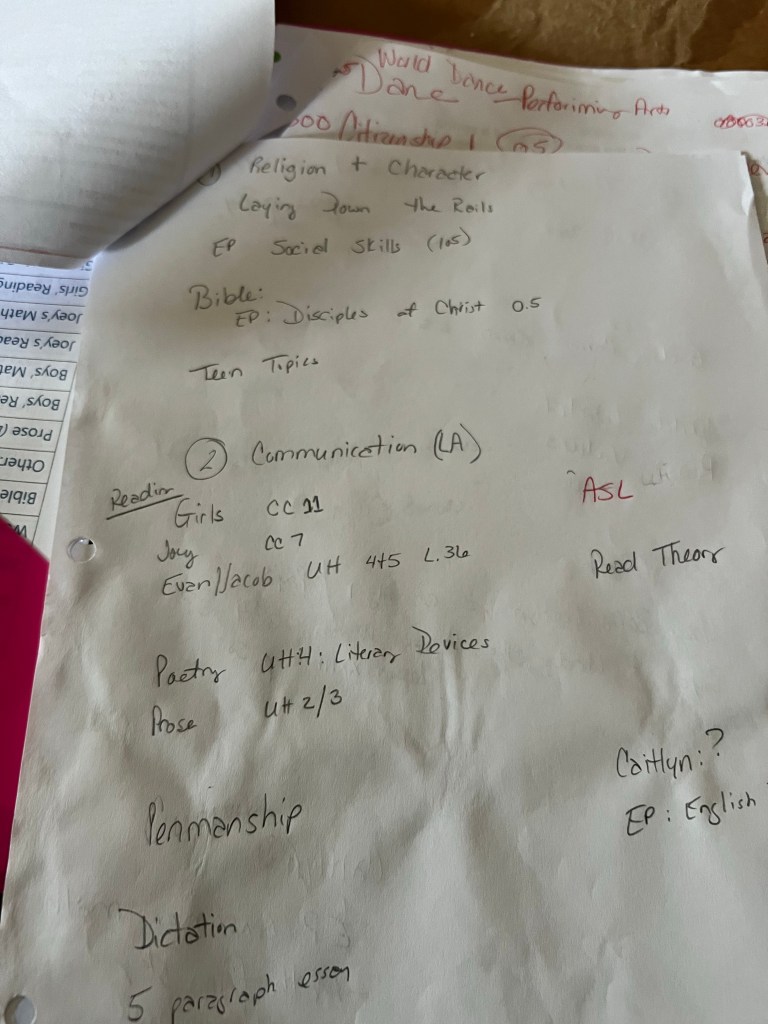 World Dance Performing Arts
Danc
000 Citizenship 1 (05)
1 Religion + Character
Laying Down the Rails
EP Social Skills (105)
Bible:
EP: Disciples of Christ 0.5
Teen Topics
2 Communication (LA)
Reading
Girls CC 11
ASL
Joey CC 7
Evan/Jacob UH 4+5 L.36
Read Theory
Poetry UH4: Literary Devices
Prose UH 2/3
Caitlyn:?
EP: English
Penmanship
Dictation
5 paragraph essay
Girls' Reading
Joey's Math
Joey's Rea
Boys' Mat
Boys' Re
Prose (
Other:
Bible